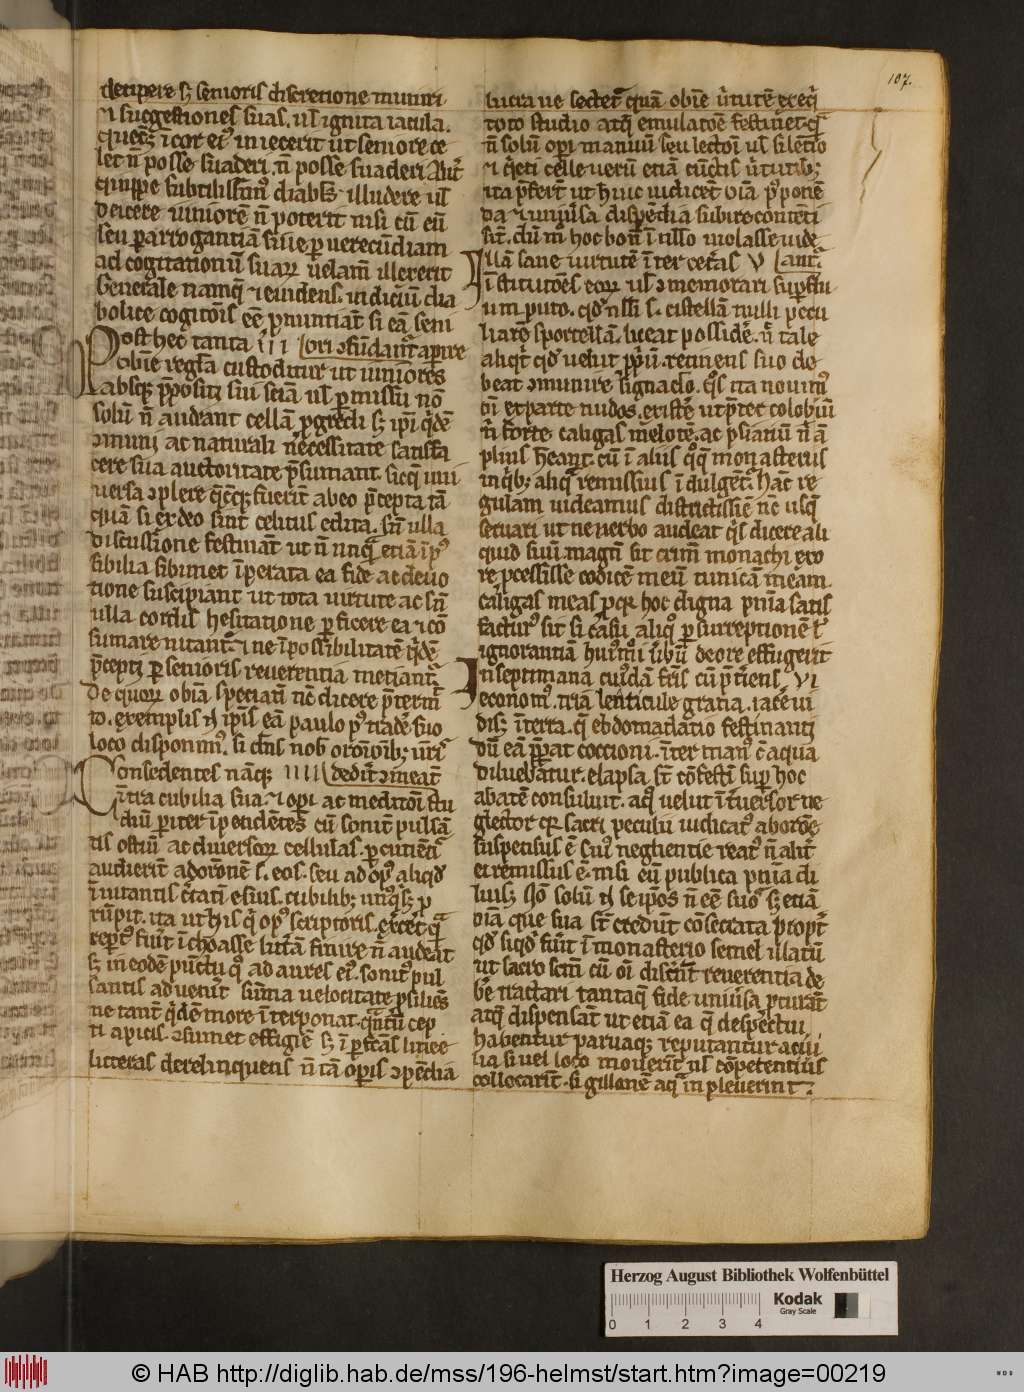 107.
decipere sʒ senioris discretione muniri
⁊ suggestiones suas. uł ignita iacula.
ler̄ n̄ posse suaderi. n̄ posse suaderi
quippe subtilissim᷒ diabol᷒ illudere uł
deicere iuniorē n̄ poterit nisi cū eū
seu ꝑ arrogantiā siue ꝑ uerecūdiam
ad cogitationū suaꝝ uelam̄ illexerit
Generale namq̨ ⁊ euidens indiciū dia
bolice cogitōis eē ꝓnuntiāt si eā seni
Post hec tanta III ori ꝯfūdant᷒ aperire
obiē regła custoditur ut iuniores
absqꝫ ꝓpositi sui sciā uł ꝑmissu nō
solū n̄ audeant cellā ꝓgredi sʒ ip̄i q̇dē
ꝯmuni ac naturali necessitate satisfa
cere sua auctoritate p̄sumant. sicq̨ uni
uersa ꝯplere q̄cūqꝫ fuerīt ab eo p̄cepta tā
quā si ex deo sint celitus edita. sn̄ ulla
discussione festināt ut n̄ nunq̄ etiā īpos
sibilia sibimet īperata ea fide ac deuo
tione suscipiant ut tota uirtute ac sn̄
ulla cordis hesitatione ꝑficere ea ⁊ cō
sumare nitant᷒ ⁊ ne īpossibilitatē q̇dē
p̄cepti ꝑ senioris reuerentia metiant᷒
De quoꝝ obiā speciatī nc̄ dicere p̄term̄
to. exemplis n̄ ip̄is eā paulo p᷒ trade᷒ suo
loco disponim᷒. si dn̄s nob̄ orōnibꝫ ur̄is
Consedentes nāqꝫ IIII dederit ꝯmeat᷒
ītra cubilia sua ⁊ oꝑi ac meditōi stu
diū ꝑiter īpendentes cū sonit᷒ pulsā
tis ostiū ac diuersoꝝ cellulas ꝑcutienti᷒
audierīt ad orōnē s. eos. seu ad op᷒ aliqd̄
rūpit. ita ut his q̇ op᷒ scriptoris. exercet q̄
rept᷒ fuīt īchoasse litt̄ā finire n̄ audeat
sʒ in eodē pūctu q᷒ ad aures ei᷒. sonit᷒ pul
santis aduenit sūma uelocitate ꝓsiliēs
ne tant᷒ q̇dē more īterponat. q̄ntū cep
ti apicis ꝯsumet effigiē sʒ īꝑfc̄as linee
litteras derelinquens n̄ tā oꝑis ꝯpēdia
lucra ue sectet᷒ quā obiē u᷒tutē exeq̇
toto studio atq̨ emulatōe festinet. q̄
n̄ solū oꝑi manuū seu lectōi uł silētio
⁊ q̇eti celle uerū etiā cūctis u᷒tutibꝫ
ita p̄fert ut huic iudicet oīa p᷒ponē
da ⁊ uniuersa dispēdia subire contēti
sīt. dū m̄ hoc bonū ī nullo uiolasse uide
Illā sane uirtutē īter ceteras V ant᷒.
īstitutōes eoꝝ uł ꝯmemorari suꝑflu
um puto. qd̄ nulli s. cistellā nulli pecu
liarē sportellā. liceat possidē. n̄ tale
aliqd̄ qd̄ uelut ꝓpriū. retinens suo de
beat ꝯmunire signaclo. q̄s ita nouim᷒
oī ex parte nudos. existē ut p̄ter colobiū
n̄ forte caligas melotē. ac psiatiū n̄ ā
plius habeant. cū ī aliis q̊q̨ monasteriis
in q̇bꝫ aliq̄ remissius īdulget᷒. hāc re
gulam uideamus districtissiē nc̄ usq̨
seruari ut ne uerbo audeat q̇s dicere ali
quid suū. magnū sit crim̄ monachi ex o
re ꝓcessisse codicē meū tunicā meam.
caligas meas ꝓ q̊ hoc digna pn̄ia satis
factur᷒ sit si casu aliq᷒ ꝑ surreptionē uł
ignorantiā hui᷒modi uerbū de ore effugerit
In septimana cuiusdā fr̄is cū p̄tiens VI
economus. tria lenticule grana. iacē ui
disꝫ ī terra. q̄ ebdomadario festinanti
dū eā p̄parat coccioni. īter man᷒ cū aqua
diluebātur. elapsa st̄ cōfestī suꝑ hoc
abatē consuluit. aq᷒ uelut īteruersor ne
glector qꝫ sacri peculii iudicat᷒ ab orōe
suspensus ē cui᷒ negligentie reat᷒ n̄ alit᷒
ei remissus ē. nisi eū publica pn̄ia di
luisꝫ. Nō solū n̄ se ip̄os n̄ eē suos sʒ etiā
oīa. que sua st̄ credūt cōsecrata propt᷒
qd̄ siqd̄ fuīt ī monasterio semel illatū
ut sacro scm̄ cū oī discernīt reuerentia de
be᷒ tractari tantaq̨ fide uniuersa ꝓcurāt
atq̨ dispensāt ut etiā ea q̄ despectui
habentur paruaqꝫ reputantur ac ui
lia si uel loco mouerīt uł cōpetentius
collocarīt. si gillonē aq̄ inpleuerint.
Herzog August Bibliothek Wolfenbüttel
Kodak
Gray Scale
0 1 2 3 4
© HAB http://diglib.hab.de/mss/196-helmst/start.htm?image=00219